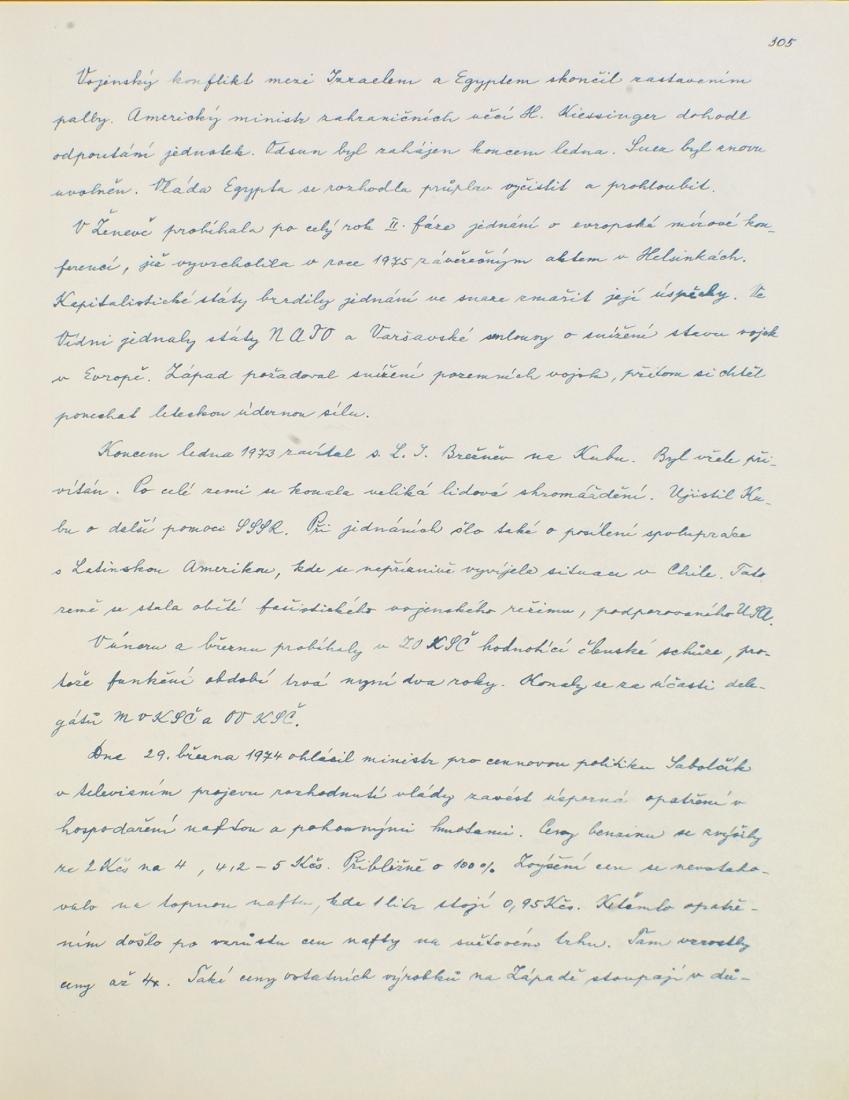 305
Vojenský konflikt mezi Izraelem a Egyptem skončil zastavením
palby. Americký ministr zahraničních věcí H. Kiessinger dohodl
odpoutání jednotek. Odsun byl zahájen koncem ledna. Suez byl znovu
uvolněn. Vláda Egypta se rozhodla průplav vyčistit a prohloubit.
V Ženevě probíhala po celý rok II. fáze jednání o evropské mírové kon-
ferenci, jež vyvrcholila v roce 1975 závěrečným aktem v Helsinkách.
Kapitalistické státy brzdily jednání ve snaze zmařit její úspěchy. Ve
Vídni jednaly státy NATO a Varšavské smlouvy o snížení stavu vojsk
v Evropě. Západ požadoval snížení pozemních vojsk, přitom si chtěl
ponechat leteckou údernou sílu.
Koncem ledna 1973 zavítal s. L. I. Brežněv na Kubu. Byl vřele při-
vítán. Po celé zemi se konala veliká lidová shromáždění. Ujistil Ku-
bu o další pomoci SSSR. Při jednáních šlo také o posílení spolupráce
s Latinskou Amerikou, kde se nepříznivě vyvíjela situace v Chile. Tato
země se stala obětí fašistického vojenského režimu, podporovaného USA.
V únoru a březnu probíhaly v ZO KSČ hodnotící členské schůze, pro-
tože funkční období trvá nyní dva roky. Konaly se za účasti dele-
gátů MV KSČ a OV KSČ.
Dne 29. března 1974 ohlásil ministr pro cennovou politiku Sabolčík
v televisním projevu rozhodnutí vlády zavést úsporná opatření v
hospodaření naftou a pohonnými hmotami. Ceny benzinu se zvýšily
ze 2 Kčs na 4, 4,2 – 5 Kčs. Přibližně o 100 %. Zvýšení cen se nevztaho-
valo na topnou naftu, kde 1 litr stojí 0,95 Kčs. K těmto opatře-
ním došlo po vzrůstu cen nafty na světovém trhu. Tam vzrostly
ceny až 4x. Také ceny ostatních výrobků na Západě stoupají v dů-